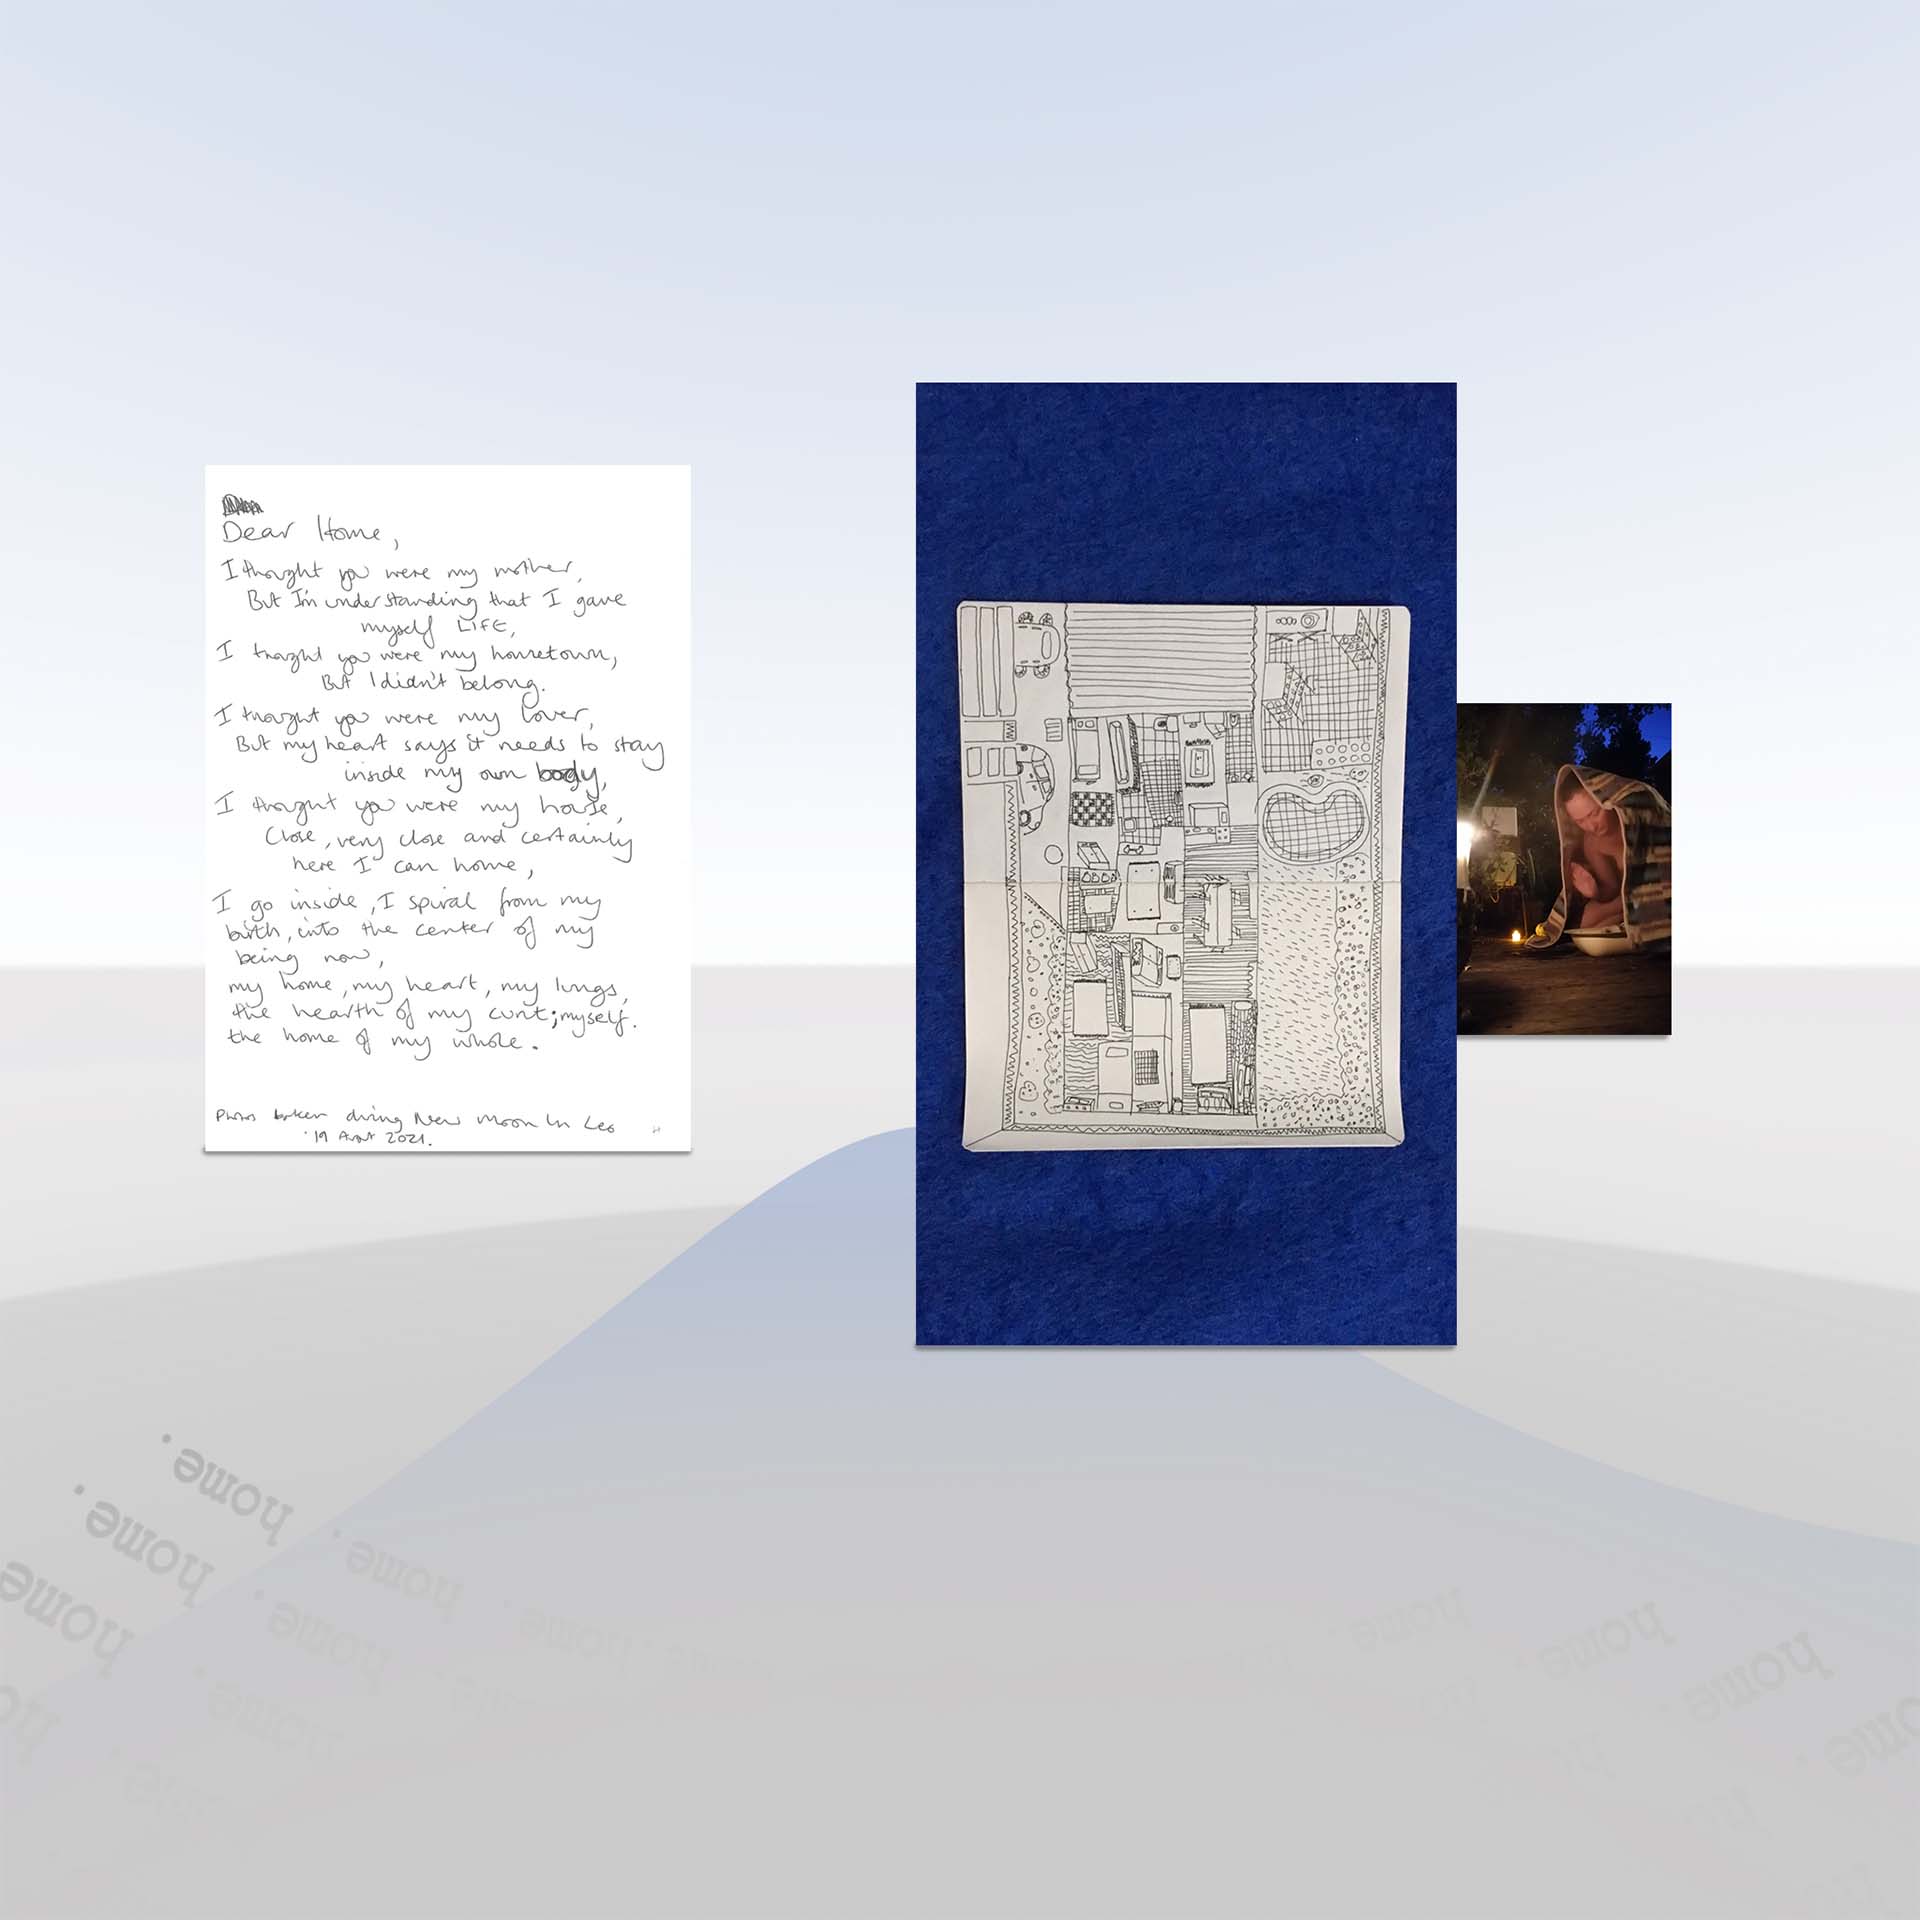 Dear Home,
I thought you were my mother,
But I'm understanding that I gave
myself LIFE,
I thought you were my hometown,
But I didn't belong.
I thought you were my lover,
But my heart says it needs to stay
inside my own body,
I thought you were my house,
Close, very close and certainly
here I can home,
I go inside, I spiral from my
birth, into the center of my
being now,
my home, my heart, my lungs,
the hearth of my cunt; myself.
the home of my whole.
Photos taken during New Moon In Leo
19 2021.
home.
home.
home.
home.
home.
home.
home.
home.
home.
home.
home.